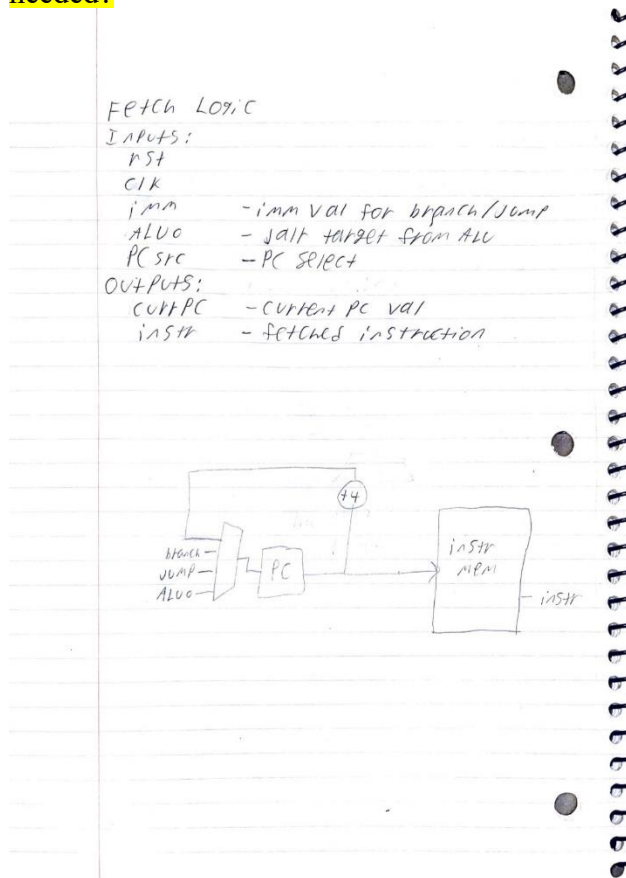 needed?
Fetch Logic
Inputs:
rst
clk
imm - imm val for branch/jump
ALUO - jalr target from ALU
PCsrc - PC select
Outputs:
currPC - current pc val
instr - fetched instruction
+4
branch
JUMP
ALUO
PC
instr
mem
instr